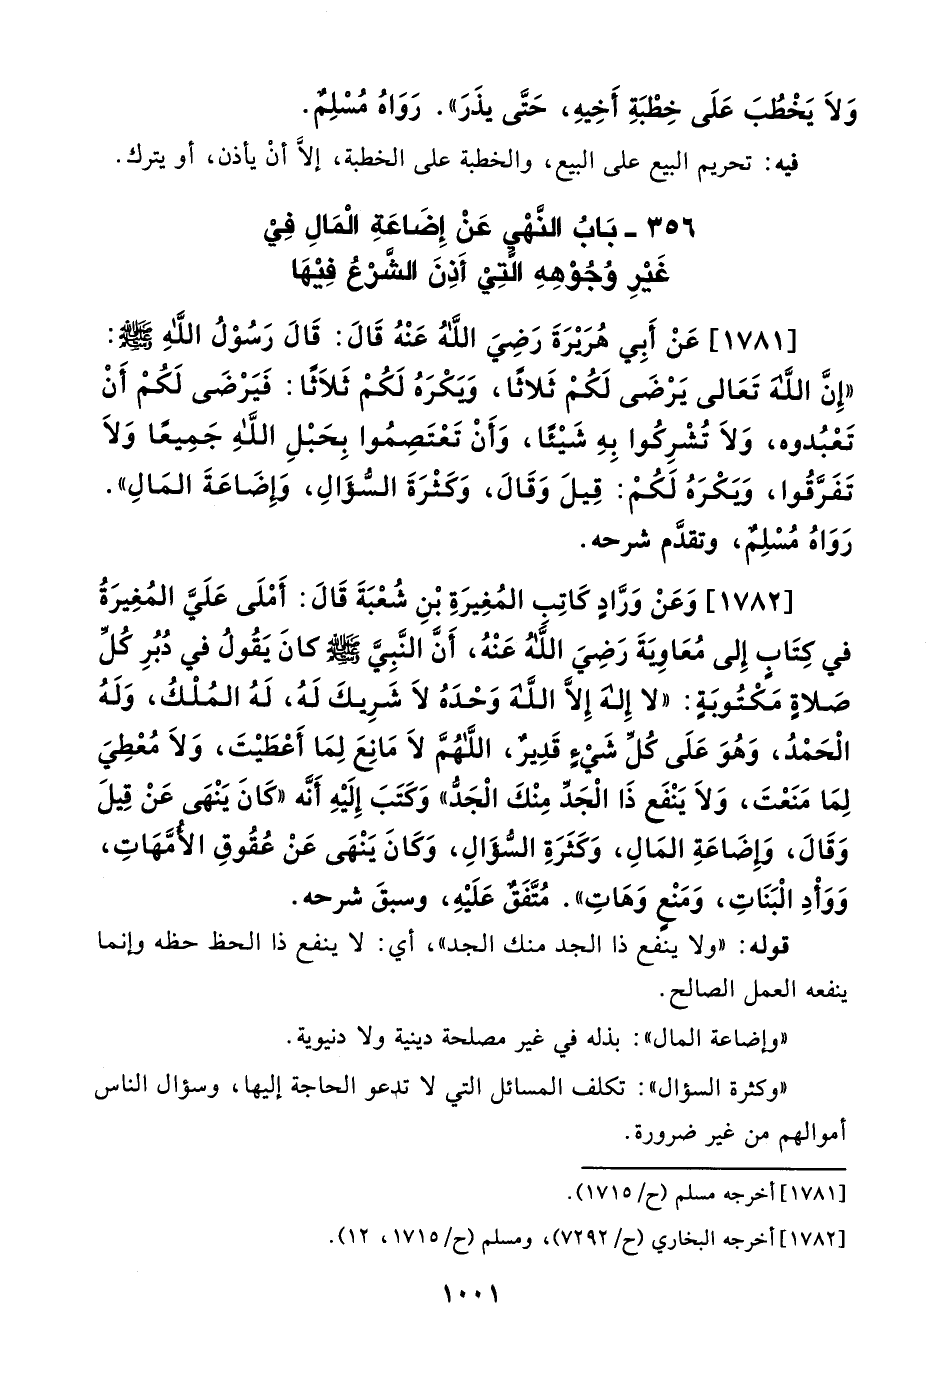 وَلاَ يَخْطُبَ عَلَى خِطْبَةِ أَخِيهِ، حَتَّى يذَرَ». رَوَاهُ مُسْلِمٌ.
فيه: تحريم البيع على البيع، والخطبة على الخطبة، إلاَّ أنْ يأذن، أو يترك.
٣٥٦ ـ بَابُ النَّهْيِ عَنْ إِضَاعَةِ الْمَالِ فِيْ
غَيْرِ وُجُوْهِهِ الَّتِيْ أَذِنَ الشَّرْعُ فِيْهَا
[١٧٨١] عَنْ أَبِي هُرَيْرَةَ رَضِيَ اللَّهُ عَنْهُ قَالَ: قَالَ رَسُوْلُ اللَّهِ ﷺ:
«إِنَّ اللَّهَ تَعَالى يَرْضَى لَكُمْ ثَلاثًا، وَيَكْرَهُ لَكُمْ ثَلاَثًا: فَيَرْضَى لَكُمْ أَنْ
تَعْبُدوه، وَلاَ تُشْرِكُوا بِهِ شَيْئًا، وَأَنْ تَعْتَصِمُوا بِحَبْلِ اللَّهِ جَمِيعًا وَلاَ
تَفَرَّقُوا، وَيَكْرَهُ لَكُمْ: قِيلَ وَقَالَ، وَكَثْرَةَ السُّؤَالِ، وَإِضَاعَةَ المَالِ».
رَوَاهُ مُسْلِمٌ، وتقدَّم شرحه.
[١٧٨٢] وَعَنْ وَرَّادٍ كَاتِبِ المُغِيرَةِ بْنِ شُعْبَةَ قَالَ: أَمْلَى عَلَيَّ المُغِيرَةُ
في كِتَابٍ إلى مُعَاوِيَةَ رَضِيَ اللَّهُ عَنْهُ، أَنَّ النَّبِيَّ ﷺ كانَ يَقُولُ في دُبُرِ كُلِّ
صَلاةٍ مَكْتُوبَةٍ: «لا إلهَ إلاَّ اللَّهَ وَحْدَهُ لاَ شَرِيكَ لَهُ، لَهُ المُلْكُ، وَلَهُ
الْحَمْدُ، وَهُوَ عَلَى كُلِّ شَيْءٍ قَدِيرٌ، اللَّهُمَّ لاَ مَانِعَ لِمَا أَعْطَيْتَ، وَلاَ مُعْطِيَ
لِمَا مَنَعْتَ، وَلاَ يَنْفَع ذَا الْجَدِّ مِنْكَ الْجَدُّ» وَكَتَبَ إِلَيْهِ أَنَّه «كَانَ يَنْهَى عَنْ قِيلَ
وَقَالَ، وَإِضَاعَةِ المَالِ، وَكَثَرَةِ السُّؤَالِ، وَكَانَ يَنْهَى عَنْ عُقُوقِ الأُمَّهَاتِ،
وَوَأْدِ الْبَنَاتِ، وَمَنْعٍ وَهَاتِ». مُتَّفَقٌ عَلَيْهِ، وسبقَ شرحه.
قوله: «ولا ينفع ذا الجد منك الجد»، أي: لا ينفع ذا الحظ حظه وإنما
ينفعه العمل الصالح.
«وإضاعة المال»: بذله في غير مصلحة دينية ولا دنيوية.
«وكثرة السؤال»: تكلف المسائل التي لا تدعو الحاجة إليها، وسؤال الناس
أموالهم من غير ضرورة.
[١٧٨١] أخرجه مسلم (ح/ ١٧١٥).
[١٧٨٢] أخرجه البخاري (ح/ ٧٢٩٢)، ومسلم (ح/ ١٧١٥، ١٢).
١٠٠١